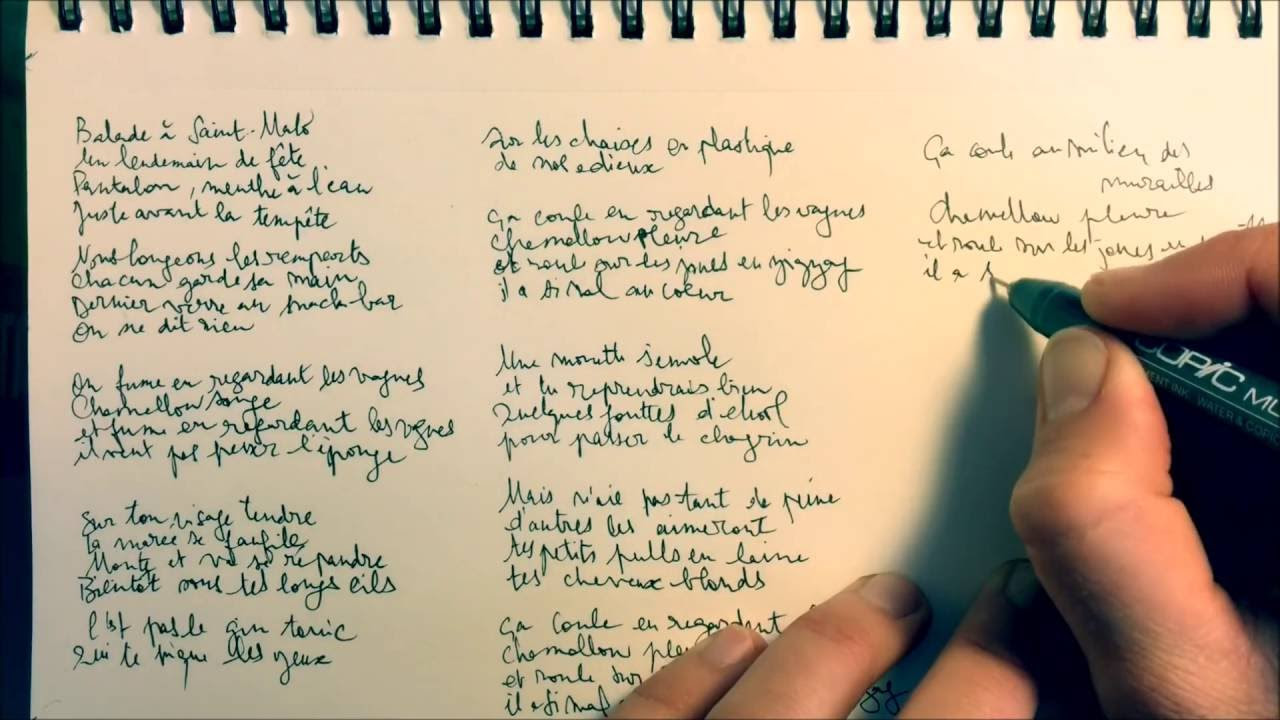 Balade à Saint-Malo
Un lendemain de fête
Pantalon, menthe à l'eau
Juste avant la tempête
Nous longeons les remparts
Chacun garde sa main
Dernier verre au snack-bar
On ne dit rien
On fume en regardant les vagues
Chamallow songe
et fume en regardant les vagues
il vient pas passer l'éponge
Sur ton visage tendre
la marée se faufile
Monte et va se répandre
Bientôt sous tes longs cils
C'est pas le gin tonic
Qui te pique les yeux
Sur les chaises en plastique
de nos adieux
Ça coule en regardant les vagues
chamallow pleure
et roule sur les joues en zigzag
il a si mal au coeur
Une mouette s'envole
et tu reprendrais bien
Quelques gouttes d'alcool
pour passer le chagrin
Mais n'aie pas tant de peine
d'autres les aimeront
tes petits pulls en laine
tes cheveux blonds
Ça coule en regardant
chamallow
et roule sur
il a si mal
Ça coule au milieu des
murailles
Chamallow pleure
et roule sur les joues en
il a s
COPIC MU
MENT INK. WATER & COPIC